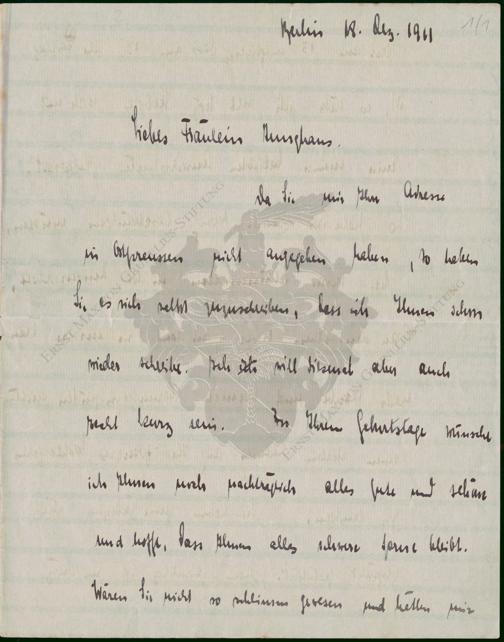 1/1
Berlin 18. Dez. 1911
Liebes Fräulein Junghans.
Da Sie mir Ihre Adresse
in Ostpreussen nicht angegeben haben, so haben
Sie es sich selbst zuzuschreiben, dass ich Ihnen schon
wieder schreibe. Ich will diesmal aber auch
recht kurz sein. Zu Ihrem Geburtstage wünsche
ich Ihnen noch nachträglich alles gute und schöne
und hoffe, dass Ihnen alles schwere ferne bleibt.
Wären Sie nicht so schlimm gewesen und hätten mir
ERNST MARTIN GANSLEIN-STIFTUNG